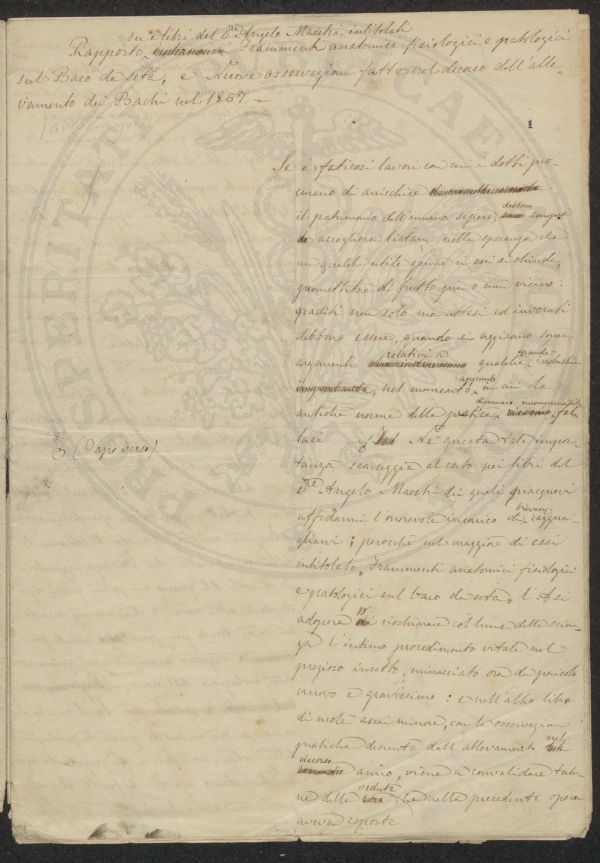 sui libri del D.re Angelo Maestri, intitolati
Rapporto Frammenti anatomici fisiologici e patologici
sul Baco da seta, e Nuove osservazioni fatte nel decorso dell'alle-
vamento dei Bachi nel 1867 =
1
Se i faticosi lavori con cui i dotti pro-
curano di aricchire
il patrimonio dell'umano sapere, debbono sempre
accogliersi nella speranza che
un qualche utile germe in essi si chiuda,
promettitore di frutto più o men vicino:
graditi non solo ma attesi ed invocati
debbono essere, quando si aggirano sopra
argomenti relativi a qualche grande industria
nel momento appunto in cui le
antiche norme della pratica fal-
laci Nè questa tale impor-
tanza scarseggia al certo pei libri del
(Capo verso)
D.re Angelo Maestri di quali piacquevi
affidarmi l'onorevole incarico di brevem. raggua-
gliarvi; perocchè nel maggiore di essi
intitolato, Frammenti anatomici fisiologici
e patologici sul baco da seta, l'A si
adopera di rischiarare col lume della scien-
za l'intimo procedimento vitale nel
prezioso insetto, minacciato ora da pericolo
nuovo e gravissimo: e nell'altro libro
di mole assai minore, con le osservazioni
pratiche desunte dall'allevamento nel
decorso anno, viene a convalidare talu-
ne delle vedute che nella precedente opera
aveva esposte